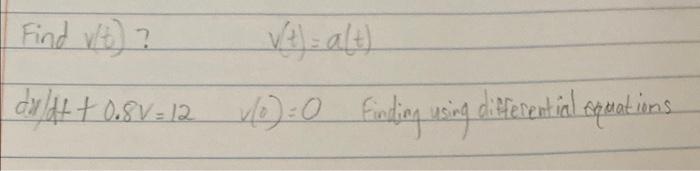 Find v(t)? v(t) = a(t)
dv/dt + 0.8v = 12 v(0) = 0 Finding using differential equations